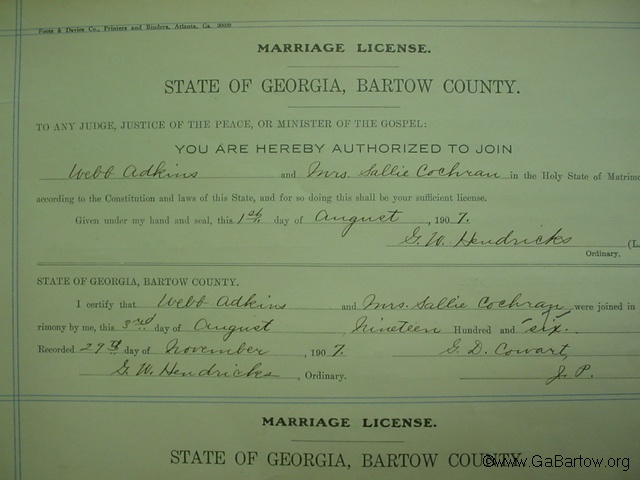 Foote & Davies Co., Printers and Binders, Atlanta, Ga.
MARRIAGE LICENSE.
STATE OF GEORGIA, BARTOW COUNTY.
TO ANY JUDGE, JUSTICE OF THE PEACE, OR MINISTER OF THE GOSPEL:
YOU ARE HEREBY AUTHORIZED TO JOIN
Webb Adkins and Mrs. Sallie Cochran in the Holy State of Matrimo
according to the Constitution and laws of this State, and for so doing this shall be your sufficient license.
Given under my hand and seal, this 1st day of August, 1907.
G. W. Hendricks (L.
Ordinary.
STATE OF GEORGIA, BARTOW COUNTY.
I certify that Webb Adkins and Mrs. Sallie Cochran were joined in
rimony by me, this 3rd day of August Nineteen Hundred and six.
Recorded 29th day of November, 1907. G. D. Cowart,
G. W. Hendricks, Ordinary. J. P.
MARRIAGE LICENSE.
STATE OF GEORGIA, BARTOW COUNTY.
©www.GaBartow.org